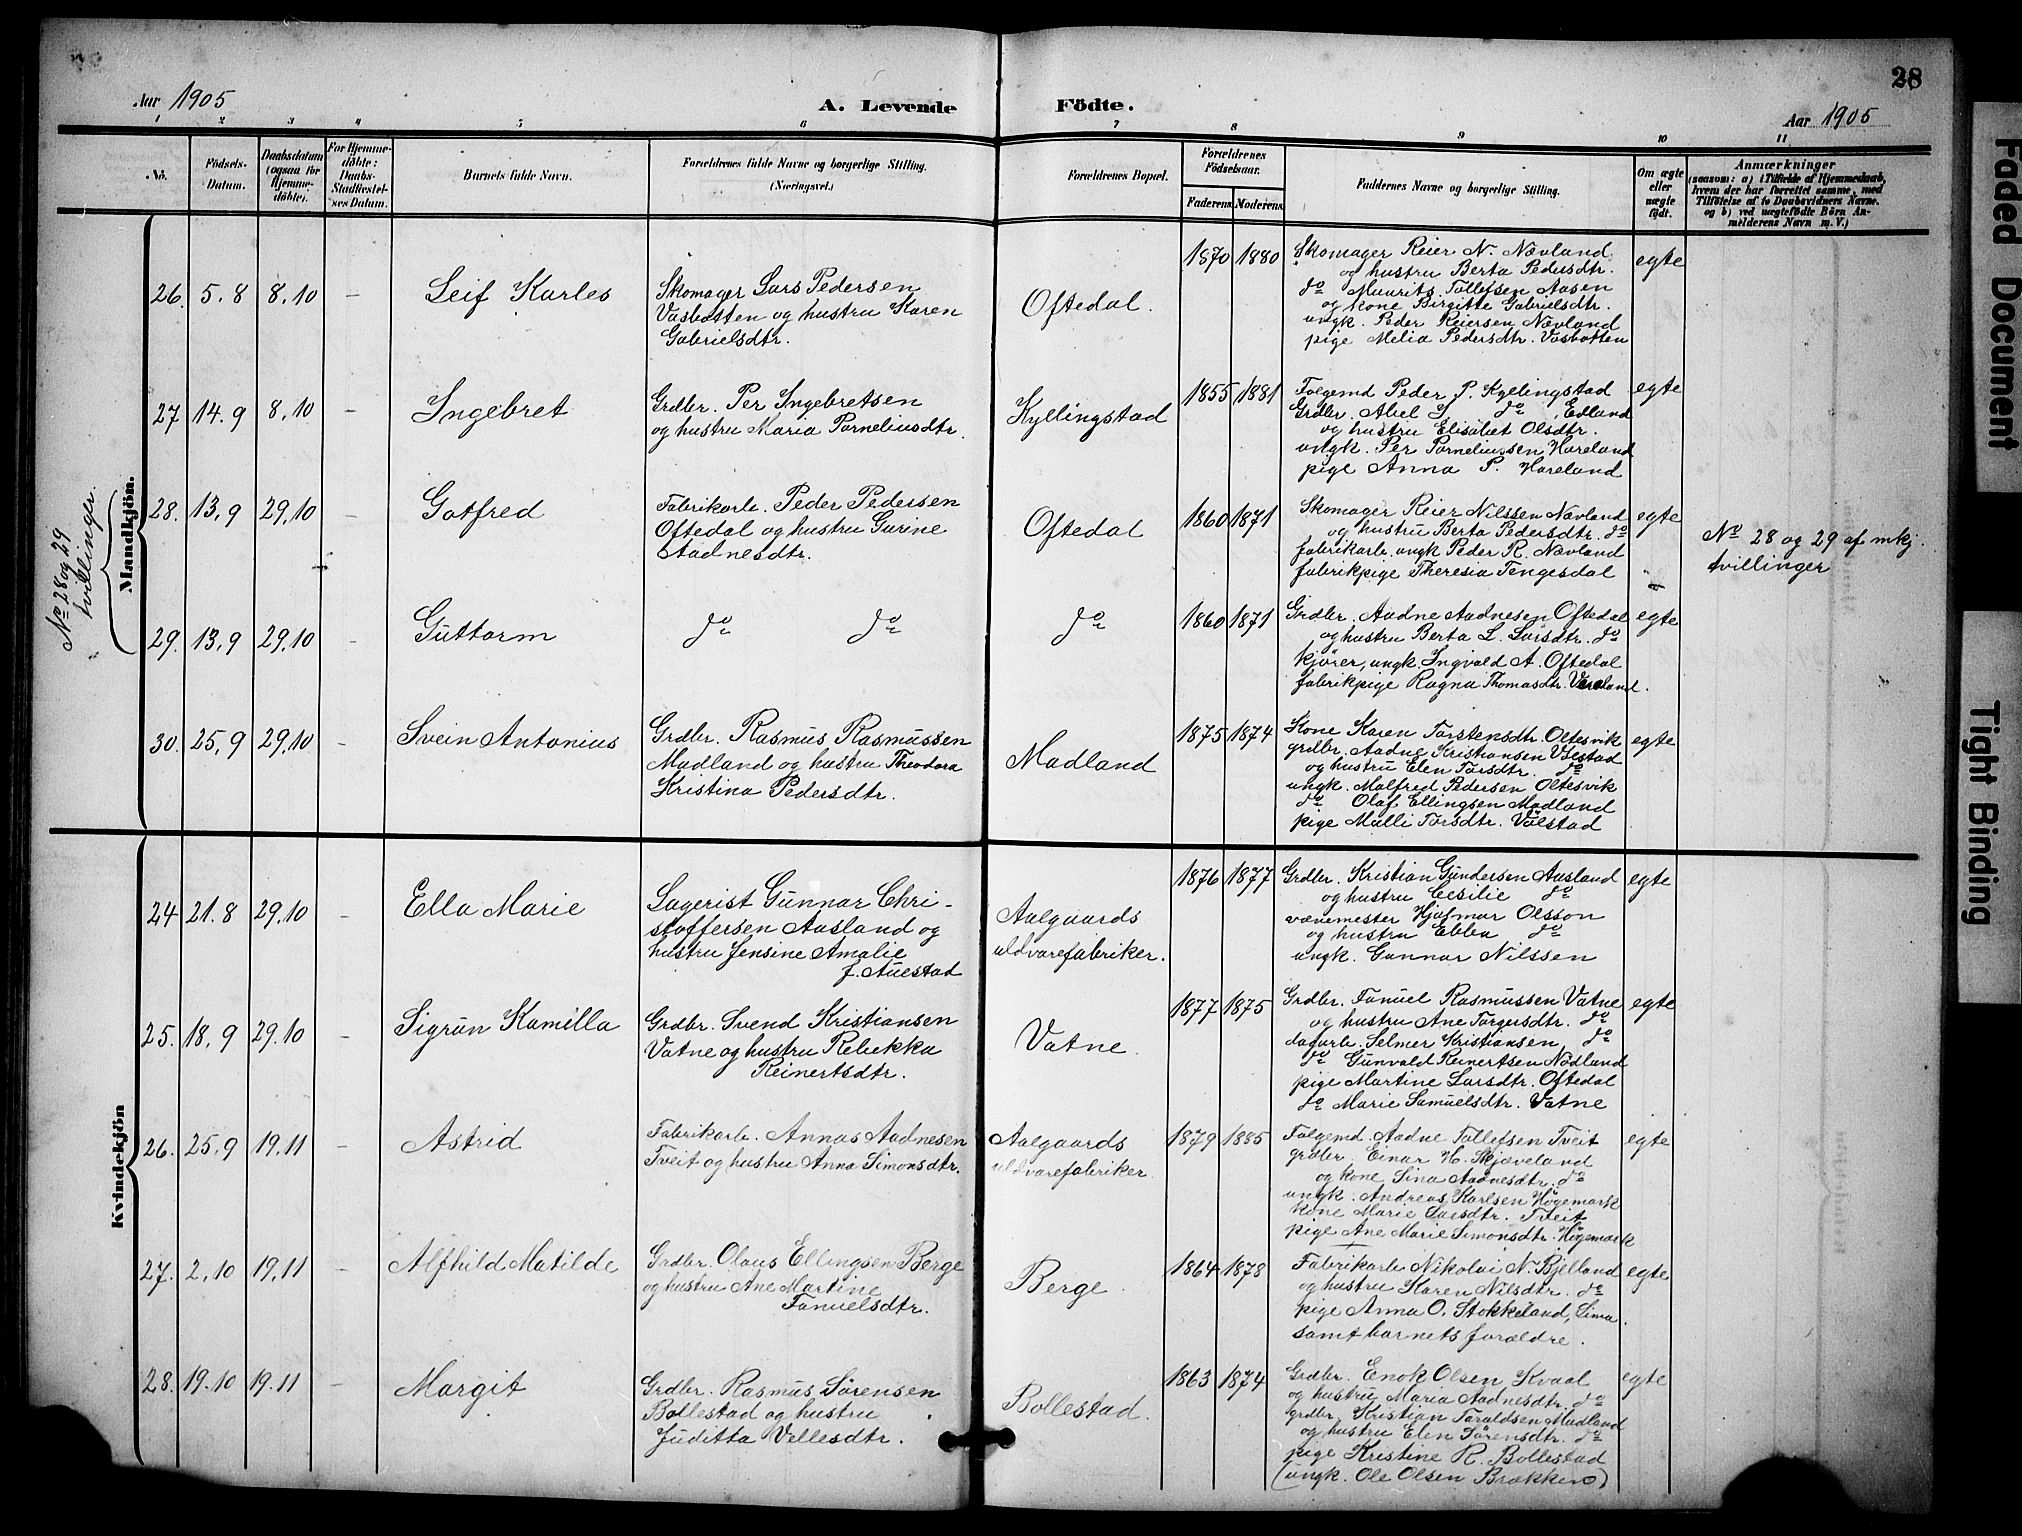 28
Aar 1905
A. Levende Födte.
Aar 1905
1 2 3 4 5 6 7 8 9 10 11
No.
Födsels-
Datum.
Daabsdatum
(ogsaa for
Hjemme-
döbte).
For Hjemme-
döbte:
Daabs-
Stadfæstel-
ses Datum.
Barnets fulde Navn.
Forældrenes fulde Navne og borgerlige Stilling.
(Næringsvei.)
Forældrenes Bopæl.
Forældrenes
Födselsaar.
Faderens Moderens
Faddernes Navne og borgerlige Stilling.
Om ægte
eller
uægte
födt.
Anmærkninger
(saasom: a) i Tilfælde af Hjemmedaab,
hvem der har forrettet samme, med
Tilföielse af to Daabsvidners Navne.
og b) ved uægtefödte Börn An-
melderens Navn m. V.)
Mandkjön.
No 28 og 29
tvillinger.
26. 5.8 8.10 – Leif Karles
Skomager Lars Pedersen
Vasbotten og hustru Karen
Gabrielsdtr.
Oftedal.
1870 1880
Skomager Reier N. Nævland
og hustru Berta Pedersdtr.
do Maurits Tollefsen Aasen
og kone Birgitte Gabrielsdtr.
ungk. Peder Reiersen Nævland
pige Melia Pedersdtr. Vasbotten
egte
27 14.9 8.10 – Ingebret
Grdbr. Per Ingebretsen
og hustru Maria Pornelius dtr.
Kyllingstad
1855 1881
Folgemd Peder P. Kyllingstad
Grdbr. Abel I. do Edland
og hustru Elisabet Olsdtr.
ungk. Per Porneliussen Hareland
pige Anna P. Hareland
egte
28. 13.9 29.10 – Gotfred
Fabrikarb. Peder Pedersen
Oftedal og hustru Gurine
Aadnesdtr.
Oftedal
1860 1871
Skomager Reier Nilssen Nævland
og hustru Berta Pedersdtr. do
fabrikarb. ungk Peder R. Nævland
fabrikpige Theresia Tengesdal
egte
No 28 og 29 af mkj.
tvillinger
29. 13.9 29.10 – Guttorm
do do
do
1860 1871
Grdbr. Aadne Aadnesen Oftedal
og hustru Berta L. Larsdtr. do
kjører, ungk. Ingvald A. Oftedal
fabrikpige Ragna Thomasdtr.
egte
30. 25.9 29.10 – Svein Antonius
Grdbr. Rasmus Rasmussen
Madland og hustru Theodora
Kristina Pedersdtr.
Madland
1875 1874
Kone Karen Torstensdtr. Oltesvik
grdbr. Aadne Kristiansen Vølstad
og hustru Elen Torsdtr. do
ungk. Malfred Pedersen Oltesvik
do Olaf Ellingsen Madland
pige Malli Torsdtr. Vølstad
egte
Kvindekjön
24 21.8 29.10 – Ella Marie
Lagerist Gunnar Chri-
stoffersen Aasland og
hustru Jensine Amalie
f. Auestad
Aalgaards
uldvarefabriker.
1876 1877
Grdbr. Kristian Gundersen Aasland
og hustru Cesilie do
vævemester Hjalmar Olsson
og hustru Ebba do
ungk. Gunnar Nilssen
egte
25. 18.9 29.10 – Sigrun Kamilla
Grdbr. Svend Kristiansen
Vatne og hustru Rebekka
Reinertsdtr.
Vatne.
1877 1875
Grdbr. Fanuel Rasmussen Vatne
og hustru Ane Torgersdtr. do
dagarb. Selmer Kristiansen, do
do Gunvald Reinertsen Nødland
pige Martine Larsdtr. Oftedal
do Marie Samuelsdtr. Vatne
egte
26. 25.9 19.11 – Astrid
Fabrikarb. Annas Aadnesen
Tveit og hustru Anna Simonsdtr.
Aalgaards
uldvarefabriker
1879 1885
Folgemd. Aadne Tollefsen Tveit
grdbr. Einar H. Skjæveland
og kone Sina Aadnesdtr. do
ungk. Andreas Karlsen Høgemark
kone Marie Larsdtr. Tveit
pige Ane Marie Simonsdtr. Høgemark
egte
27. 2.10 19.11 – Alfhild Matilde
Grdbr. Olaus Ellingsen Berge
og hustru Ane Martine
Fanuelsdtr.
Berge
1864 1878
Fabrikarb Nikolai N. Bjelland
og hustru Karen Nilsdtr. do
pige Anna O. Stokkeland, Sima
samt barnets forældre.
egte
28. 19.10 19.11 – Margit
Grdbr. Rasmus Sørensen
Bollestad og hustru
Juditta Vellesdtr.
Bollestad.
1863 1874
Grdbr. Enok Olsen Kvaal
og hustru Maria Aadnesdtr. do
grdbr. Kristian Taraldsen Madland
og hustru Elen Sørensdtr. do
pige Kristine R. Bollestad
(ungk. Ole Olsen Brækken)
egte
Faded Document
Tight Binding